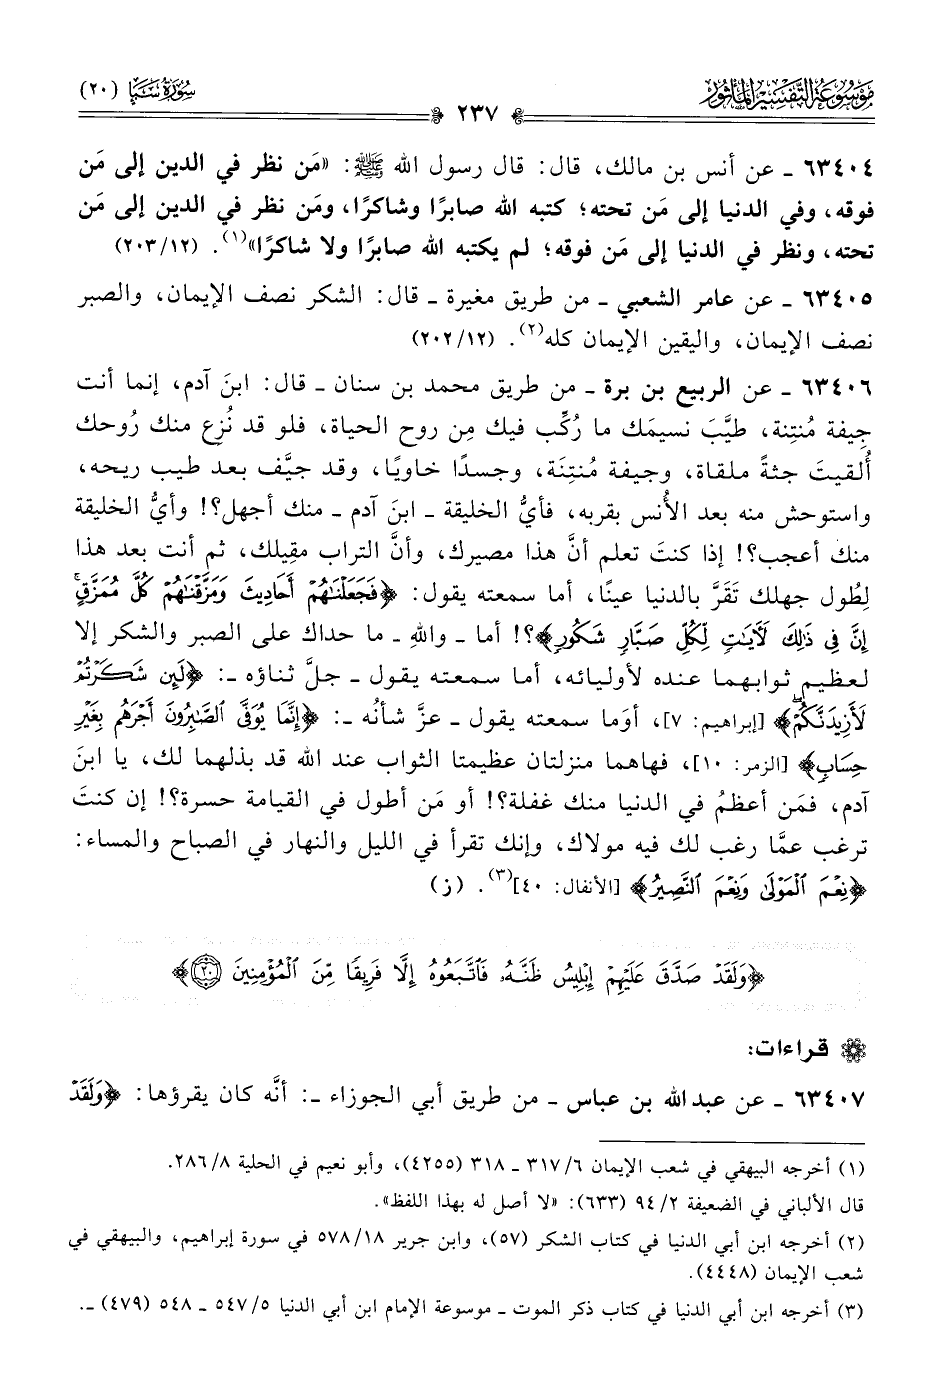 مَوْسُوعَة التَّفْسِير المَأثُور
سُورَةُ سَبَأ (٢٠)
٢٣٧
٦٣٤٠٤ ـ عن أنس بن مالك، قال: قال رسول الله ﷺ: «مَن نظر في الدين إلى مَن
فوقه، وفي الدنيا إلى مَن تحته؛ كتبه الله صابرًا وشاكرًا، ومَن نظر في الدين إلى مَن
تحته، ونظر في الدنيا إلى مَن فوقه؛ لم يكتبه الله صابرًا ولا شاكرًا»(١). (٢٠٣/١٢)
٦٣٤٠٥ ـ عن عامر الشعبي ـ من طريق مغيرة ـ قال: الشكر نصف الإيمان، والصبر
نصف الإيمان، واليقين الإيمان كله(٢). (٢٠٢/١٢)
٦٣٤٠٦ ـ عن الربيع بن برة ـ من طريق محمد بن سنان ـ قال: ابنَ آدم، إنما أنت
جِيفة مُنتِنة، طيَّبَ نسيمَك ما رُكِّب فيك مِن روح الحياة، فلو قد نُزِع منك رُوحك
أُلقيتَ جثةً ملقاة، وجيفة مُنتِنَة، وجسدًا خاويًا، وقد جيَّف بعد طيب ريحه،
واستوحش منه بعد الأُنس بقربه، فأيُّ الخليقة ـ ابنَ آدم ـ منك أجهل؟! وأيُّ الخليقة
منك أعجب؟! إذا كنتَ تعلم أنَّ هذا مصيرك، وأنَّ التراب مقِيلك، ثم أنت بعد هذا
لِطُول جهلك تَقَرَّ بالدنيا عينًا، أما سمعته يقول: ﴿فَجَعَلْنَٰهُمْ أَحَادِيثَ وَمَزَّقْنَٰهُمْ كُلَّ مُمَزَّقٍۚ
إِنَّ فِي ذَٰلِكَ لَأٓيَٰتٖ لِّكُلِّ صَبَّارٖ شَكُورٖ﴾؟! أما ـ واللهِ ـ ما حداك على الصبر والشكر إلا
لعظيم ثوابهما عنده لأوليائه، أما سمعته يقول ـ جلَّ ثناؤه ـ: ﴿لَئِن شَكَرۡتُمۡ
لَأَزِيدَنَّكُمۡۖ﴾ [إبراهيم: ٧]، أوَما سمعته يقول ـ عزَّ شأنُه ـ: ﴿إِنَّمَا يُوَفَّى ٱلصَّٰبِرُونَ أَجۡرَهُم بِغَيۡرِ
حِسَابٖ﴾ [الزمر: ١٠]، فهاهما منزلتان عظيمتا الثواب عند الله قد بذلهما لك، يا ابنَ
آدم، فمَن أعظمُ في الدنيا منك غفلة؟! أو مَن أطول في القيامة حسرة؟! إن كنتَ
ترغب عمَّا رغب لك فيه مولاك، وإنك تقرأ في الليل والنهار في الصباح والمساء:
﴿نِعۡمَ ٱلۡمَوۡلَىٰ وَنِعۡمَ ٱلنَّصِيرُ﴾ [الأنفال: ٤٠](٣). (ز)
﴿وَلَقَدۡ صَدَّقَ عَلَيۡهِمۡ إِبۡلِيسُ ظَنَّهُۥ فَٱتَّبَعُوهُ إِلَّا فَرِيقٗا مِّنَ ٱلۡمُؤۡمِنِينَ ٢٠﴾
قراءات:
٦٣٤٠٧ ـ عن عبدالله بن عباس ـ من طريق أبي الجوزاء ـ: أنَّه كان يقرؤها: ﴿وَلَقَدۡ
(١) أخرجه البيهقي في شعب الإيمان ٣١٧/٦ ـ ٣١٨ (٤٢٥٥)، وأبو نعيم في الحلية ٢٨٦/٨.
قال الألباني في الضعيفة ٩٤/٢ (٦٣٣): «لا أصل له بهذا اللفظ».
(٢) أخرجه ابن أبي الدنيا في كتاب الشكر (٥٧)، وابن جرير ٥٧٨/١٨ في سورة إبراهيم، والبيهقي في
شعب الإيمان (٤٤٤٨).
(٣) أخرجه ابن أبي الدنيا في كتاب ذكر الموت ـ موسوعة الإمام ابن أبي الدنيا ٥٤٧/٥ ـ ٥٤٨ (٤٧٩) ـ.